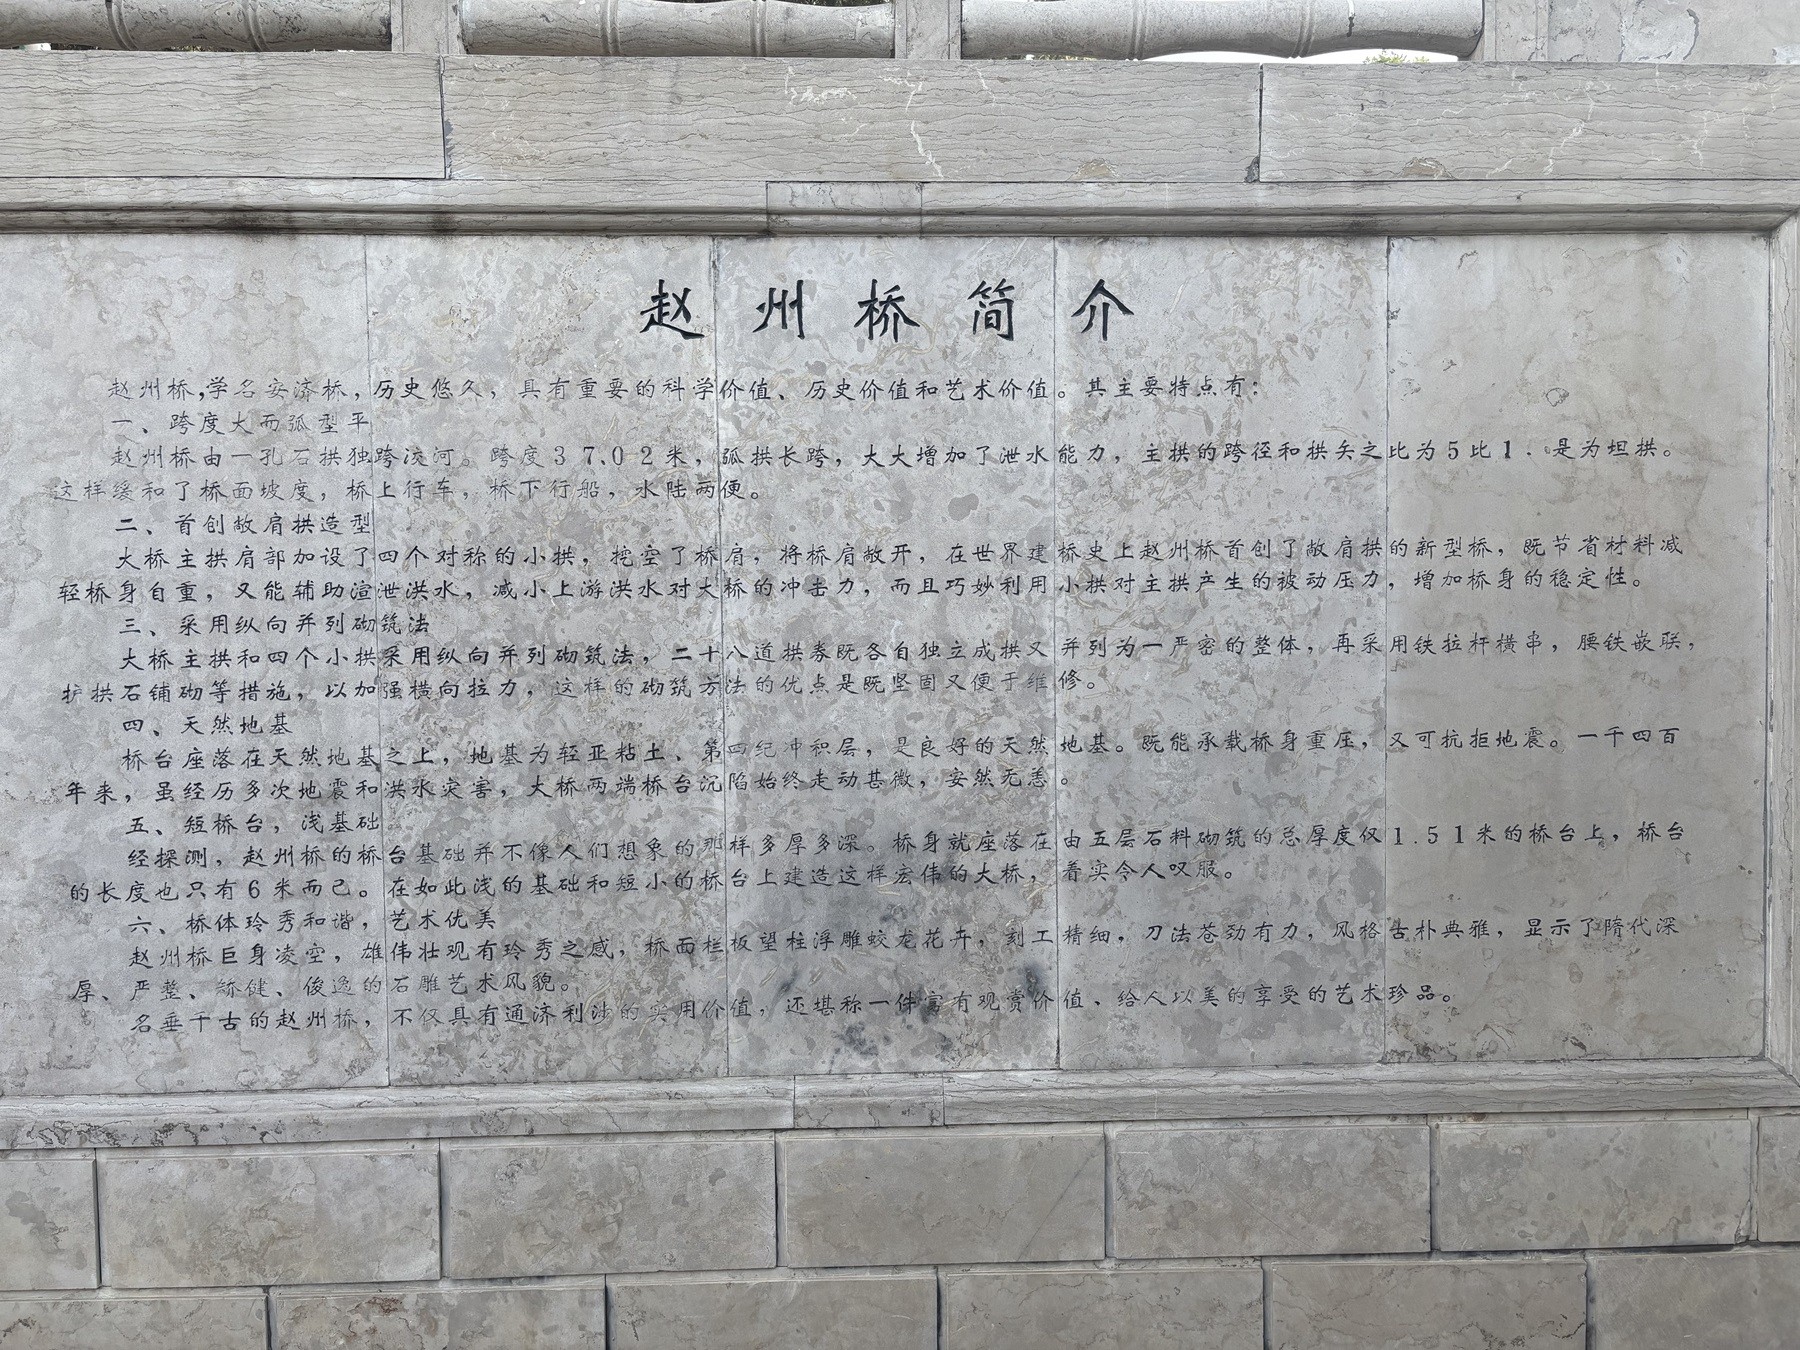 赵州桥简介
赵州桥,学名安济桥,历史悠久，具有重要的科学价值、历史价值和艺术价值。其主要特点有：
一、跨度大而弧型平
赵州桥由一孔石拱独跨洨河。跨度37.02米，弧拱长跨，大大增加了泄水能力，主拱的跨径和拱矢之比为5比1.是为坦拱。
这样缓和了桥面坡度，桥上行车，桥下行船，水陆两便。
二、首创敞肩拱造型
大桥主拱肩部加设了四个对称的小拱，挖空了桥肩，将桥肩敞开，在世界建桥史上赵州桥首创了敞肩拱的新型桥，既节省材料减
轻桥身自重，又能辅助渲泄洪水，减小上游洪水对大桥的冲击力，而且巧妙利用小拱对主拱产生的被动压力，增加桥身的稳定性。
三、采用纵向并列砌筑法
大桥主拱和四个小拱采用纵向并列砌筑法，二十八道拱券既各自独立成拱又并列为一严密的整体，再采用铁拉杆横串，腰铁嵌联，
护拱石铺砌等措施，以加强横向拉力，这样的砌筑方法的优点是既坚固又便于维修。
四、天然地基
桥台座落在天然地基之上，地基为轻亚粘土、第四纪冲积层，是良好的天然地基。既能承载桥身重压，又可抗拒地震。一千四百
年来，虽经历多次地震和洪水灾害，大桥两端桥台沉陷始终走动甚微，安然无恙。
五、短桥台，浅基础
经探测，赵州桥的桥台基础并不像人们想象的那样多厚多深。桥身就座落在由五层石料砌筑的总厚度仅1.51米的桥台上，桥台
的长度也只有6米而已。在如此浅的基础和短小的桥台上建造这样宏伟的大桥，着实令人叹服。
六、桥体玲秀和谐，艺术优美
赵州桥巨身凌空，雄伟壮观有玲秀之感，桥面栏板望柱浮雕蛟龙花卉，刻工精细，刀法苍劲有力，风格古朴典雅，显示了隋代深
厚、严整、矫健、俊逸的石雕艺术风貌。
名垂千古的赵州桥，不仅具有通济利涉的实用价值，还堪称一件富有观赏价值、给人以美的享受的艺术珍品。